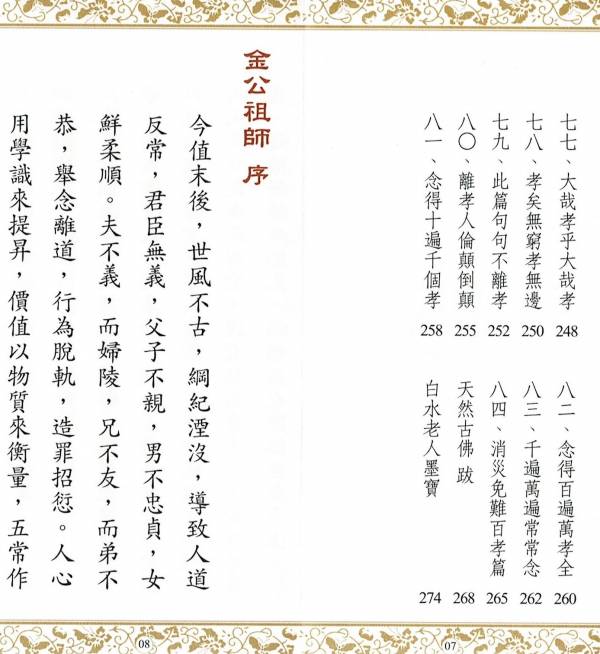 七七、大哉孝乎大哉孝 248
七八、孝矣無窮孝無邊 250
七九、此篇句句不離孝 252
八〇、離孝人倫顛倒顛 255
八一、念得十遍千個孝 258
八二、念得百遍萬孝全 260
八三、千遍萬遍常常念 262
八四、消災免難百孝篇 265
天然古佛 跋 268
白水老人墨寶 274
07
金公祖師 序
今值末後，世風不古，綱紀湮沒，導致人道
反常，君臣無義，父子不親，男不忠貞，女
鮮柔順。夫不義，而婦陵，兄不友，而弟不
恭，舉念離道，行為脫軌，造罪招愆。人心
用學識來提昇，價值以物質來衡量，五常作
08